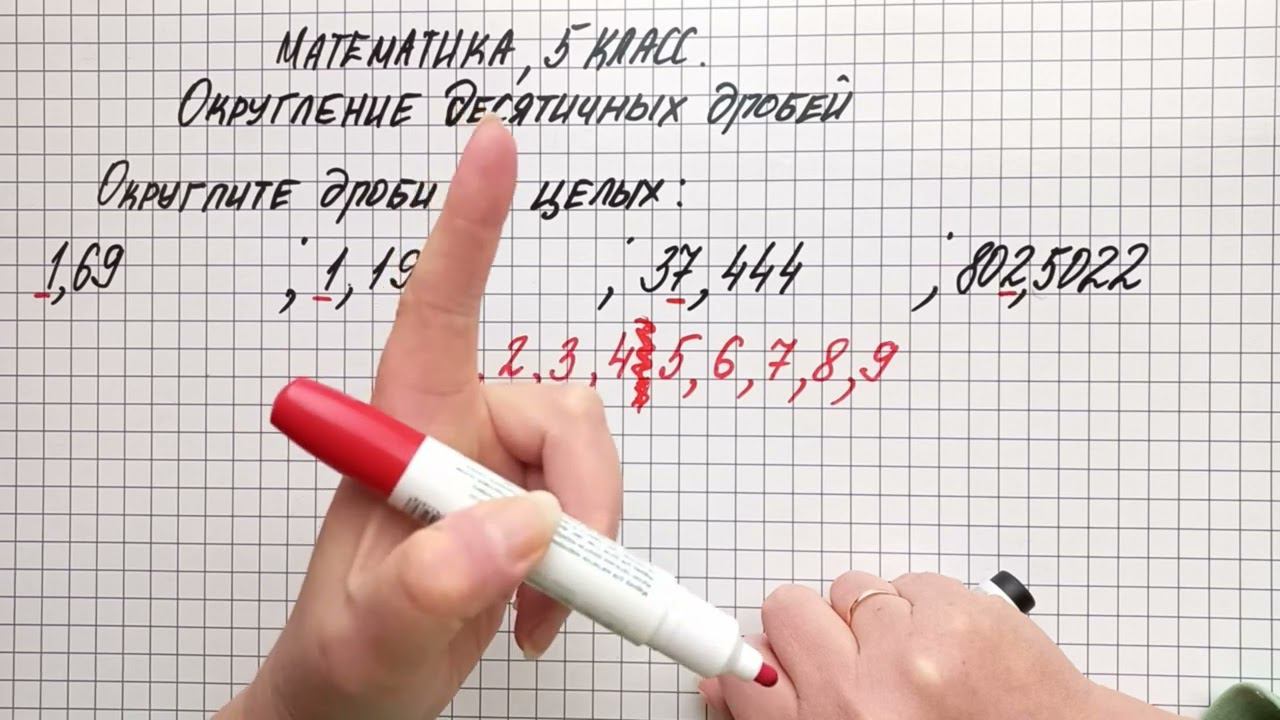 МАТЕМАТИКА, 5 КЛАСС.
ОКРУГЛЕНИЕ ДЕСЯТИЧНЫХ ДРОБЕЙ
ОКРУГЛИТЕ ДРОБИ ЦЕЛЫХ:
1,69 ; 1,19 ; 37,444 ; 802,5022
2, 3, 4 5, 6, 7, 8, 9